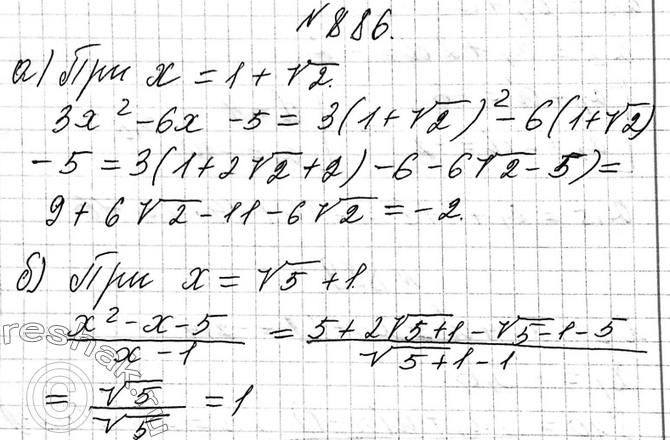 № 886.
а) При x = 1 + √2.
3x² - 6x - 5 = 3(1+√2)² - 6(1+√2)
- 5 = 3(1+2√2+2) - 6 - 6√2 - 5) =
9 + 6√2 - 11 - 6√2 = -2.
б) При x = √5 + 1.
(x² - x - 5)/(x - 1) = (5 + 2√5 + 1 - √5 - 1 - 5)/(√5 + 1 - 1)
= √5/√5 = 1
reshak.ru